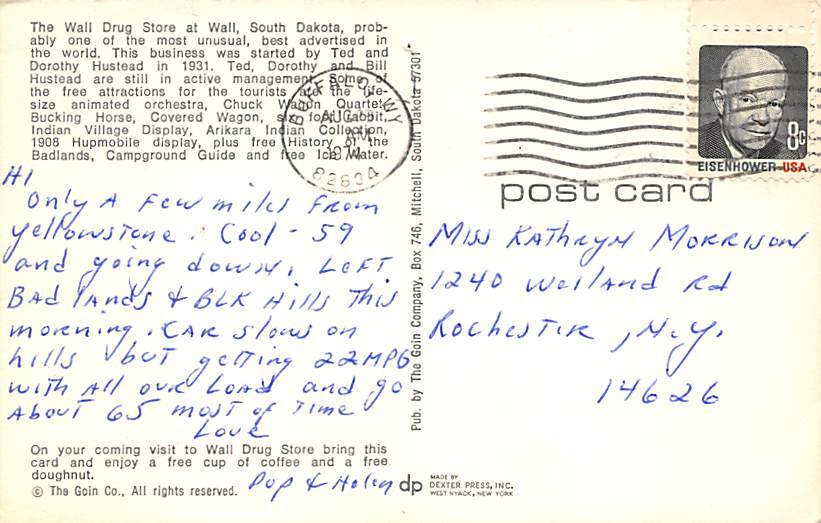 The Wall Drug Store at Wall, South Dakota, prob-
ably one of the most unusual, best advertised in
the world. This business was started by Ted and
Dorothy Hustead in 1931. Ted, Dorothy and Bill
Hustead are still in active management. Some of
the free attractions for the tourists are the life-
size animated orchestra, Chuck Wagon Quartet,
Bucking Horse, Covered Wagon, six foot rabbit,
Indian Village Display, Arikara Indian Collection,
1908 Hupmobile display, plus free History of the
Badlands, Campground Guide and free Ice Water.
HI
Only A Few miles From
Yellowstone. Cool - 59
and going down. LEFT
Bad lands & BLK Hills This
morning. CAR slows on
hills but getting 22MPG
with All our Load and go
About 65 most of Time
Love
Pop & Helen
On your coming visit to Wall Drug Store bring this
card and enjoy a free cup of coffee and a free
doughnut.
© The Goin Co., All rights reserved.
Pub. by The Goin Company, Box 746, Mitchell, South Dakota 57301
dp
MADE BY
DEXTER PRESS, INC.
WEST NYACK, NEW YORK
BUFFALO, WY
AUG
AM
82834
8c
EISENHOWER USA
post card
Miss Kathryn Morrison
1240 Weiland Rd
Rochester, N.Y.
14626